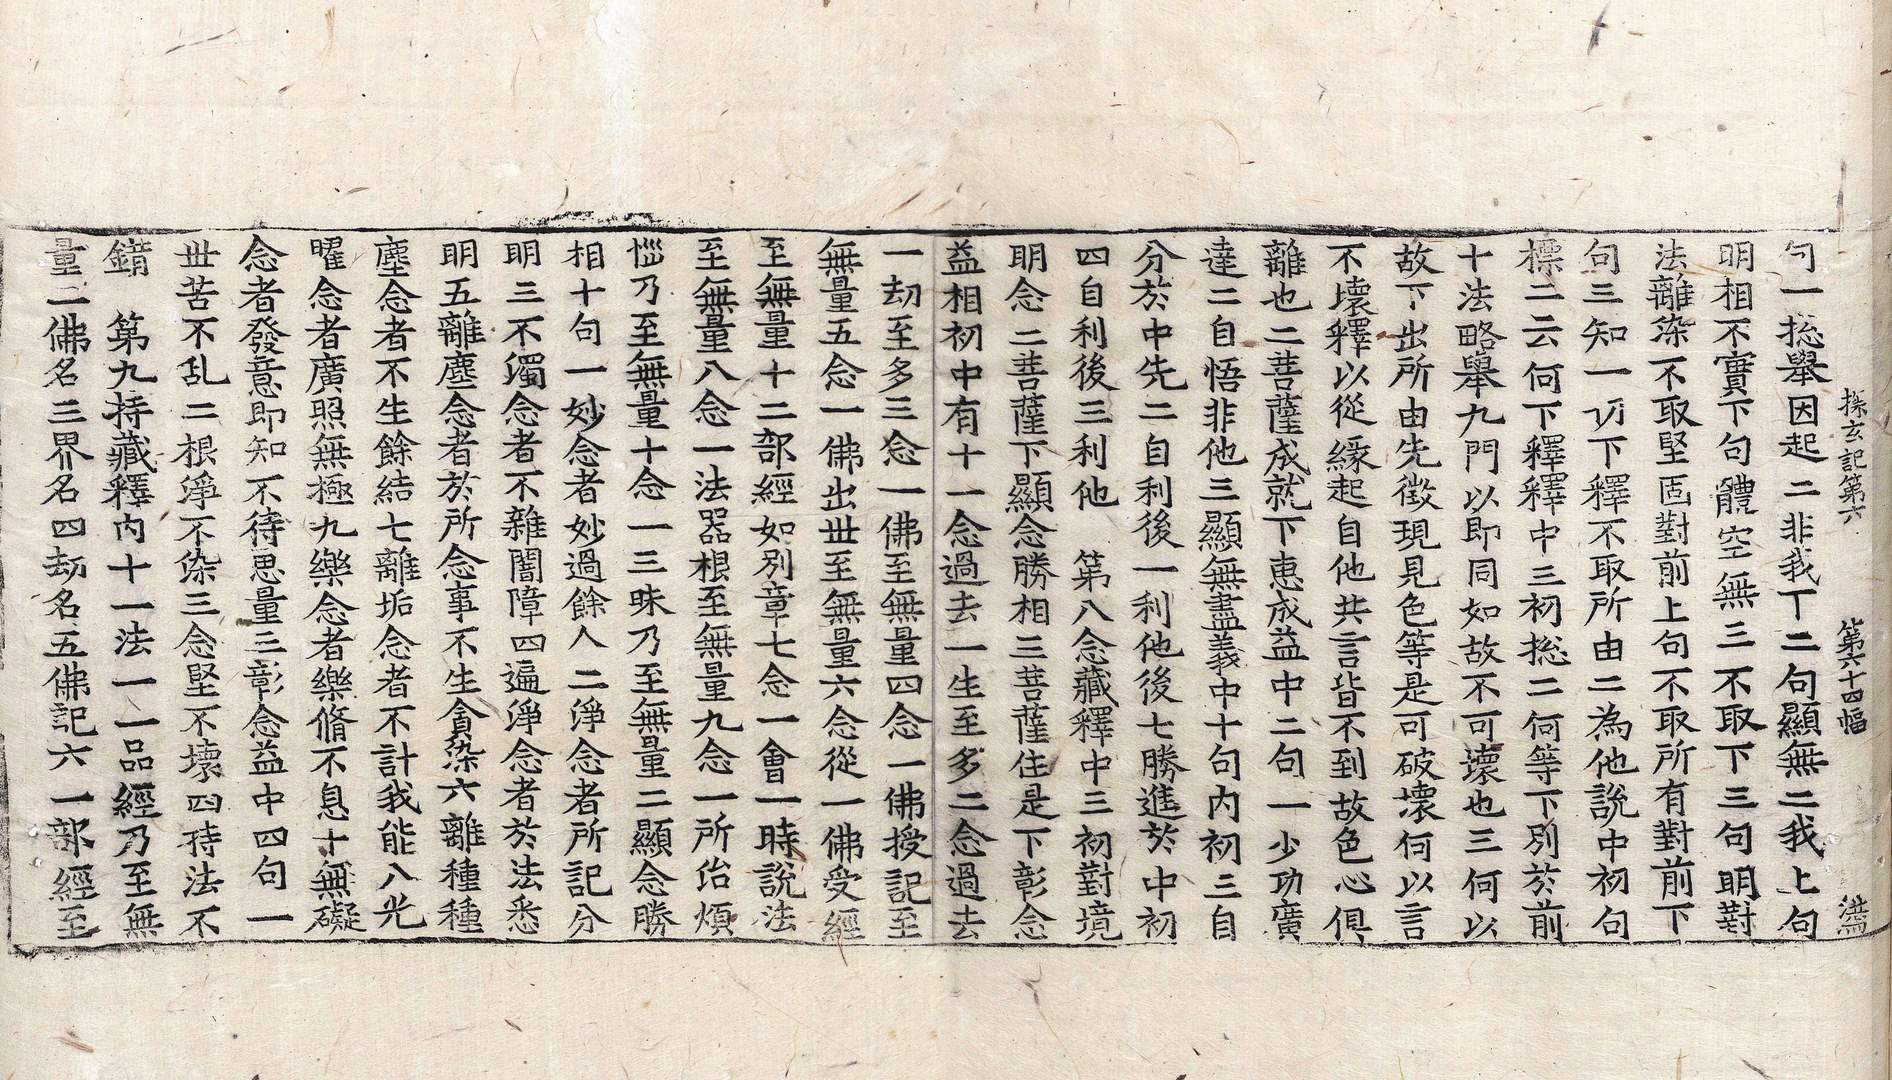 探玄記第六 第六十四幅 洪
句一捴舉因起二非我丅二句顯無二我上句
明相不實下句體空無三不取下三句明對
法離染不取堅固對前上句不取所有對前下
句三知一切下釋不取所由二為他說中初句
標二云何下釋釋中三初捴二何等下別於前
十法略舉九門以即同如故不可壞也三何以
故下出所由先徴現見色等是可破壞何以言
不壞釋以從縁起自他共言皆不到故色心俱
離也二菩薩成就下恵成益中二句一少功廣
達二自悟非他三顯無盡義中十句内初三自
分於中先二自利後一利他後七勝進於中初
四自利後三利他 第八念藏釋中三初對境
明念二菩薩下顯念勝相三菩薩住是下彰念
益相初中有十一念過去一生至多二念過去
一刧至多三念一佛至無量四念一佛授記至
無量五念一佛出世至無量六念從一佛受經
至無量十二部經如別章七念一會一時說法
至無量八念一法器根至無量九念一所治煩
惱乃至無量十念一三昧乃至無量二顯念勝
相十句一妙念者妙過餘人二淨念者所記分
明三不濁念者不雜闇障四遍淨念者於法悉
明五離塵念者於所念事不生貪染六離種種
塵念者不生餘結七離垢念者不計我能八光
曜念者廣照無極九樂念者樂脩不息十無礙
念者發意即知不待思量三彰念益中四句一
世苦不乱二根淨不染三念堅不壞四持法不
錯 第九持藏釋内十一法一一品經乃至無
量二佛名三界名四刧名五佛記六一部經至